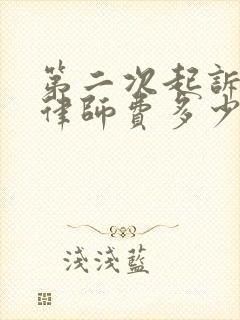 第二次起訴
律師費多少
淺淺藍